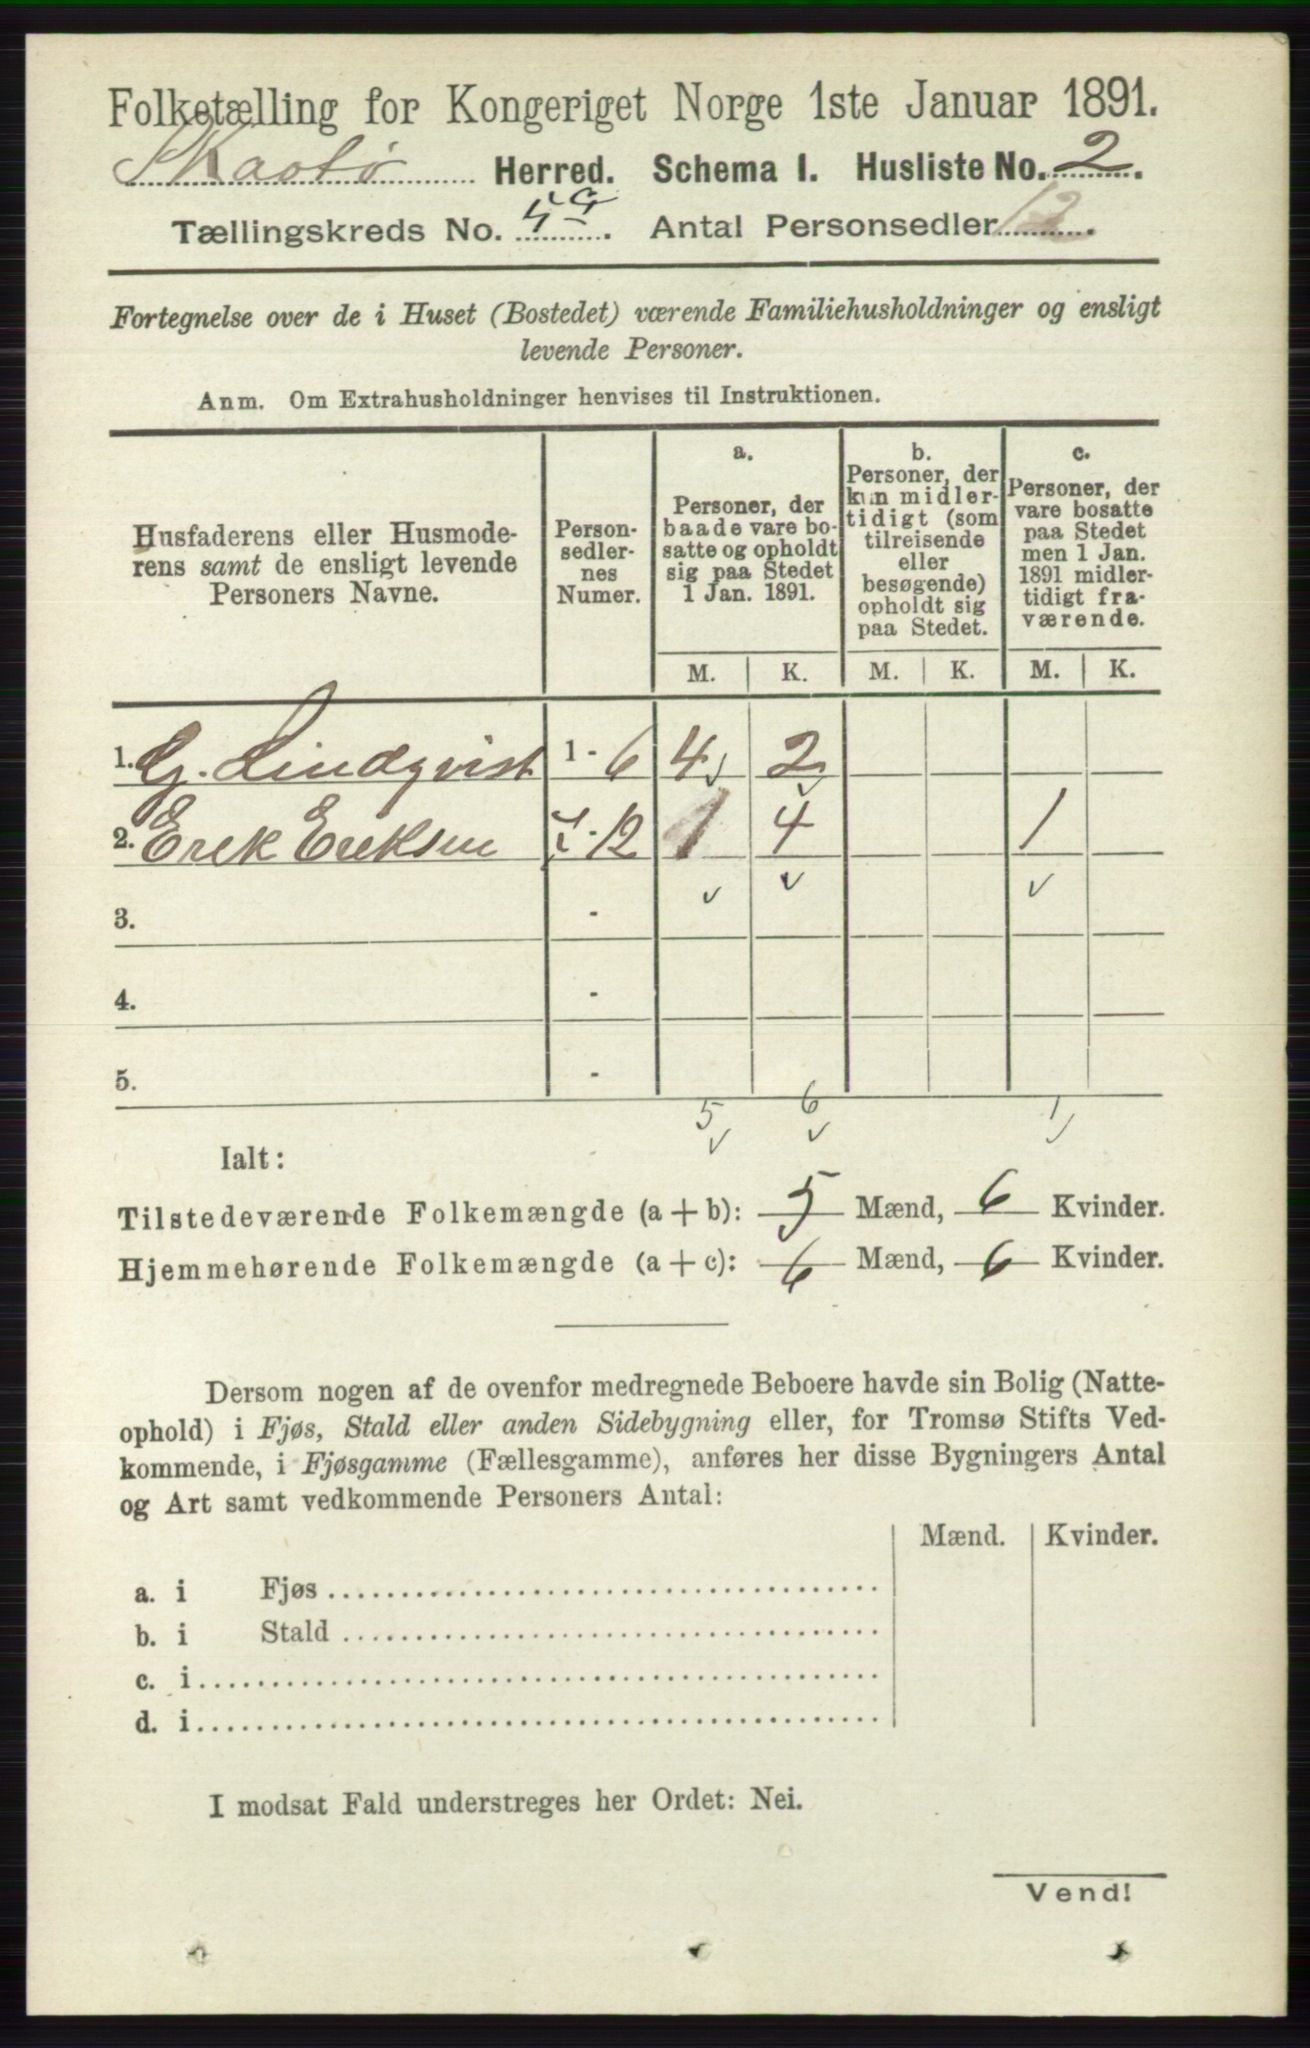 Folketælling for Kongeriget Norge 1ste Januar 1891.
Skaatø Herred. Schema I. Husliste No. 2.
Tællingskreds No. 5a. Antal Personsedler 12.
Fortegnelse over de i Huset (Bostedet) værende Familiehusholdninger og ensligt
levende Personer.
Anm. Om Extrahusholdninger henvises til Instruktionen.
Husfaderens eller Husmode-
rens samt de ensligt levende
Personers Navne.
Person-
sedler-
nes
Numer.
a.
Personer, der
baade vare bo-
satte og opholdt
sig paa Stedet
1 Jan. 1891.
b.
Personer, der
kun midler-
tidigt (som
tilreisende
eller
besøgende)
opholdt sig
paa Stedet.
c.
Personer, der
vare bosatte
paa Stedet
men 1 Jan.
1891 midler-
tidigt fra-
værende.
M. K. M. K. M. K.
1. G. Lindqvist 1 - 6 4 2
2. Erik Eriksen 7 - 12 1 4 1
3. -
4. -
5. -
5 6 1
Ialt:
Tilstedeværende Folkemængde (a + b): 5 Mænd, 6 Kvinder.
Hjemmehørende Folkemængde (a + c): 6 Mænd, 6 Kvinder.
Dersom nogen af de ovenfor medregnede Beboere havde sin Bolig (Natte-
ophold) i Fjøs, Stald eller anden Sidebygning eller, for Tromsø Stifts Ved-
kommende, i Fjøsgamme (Fællesgamme), anføres her disse Bygningers Antal
og Art samt vedkommende Personers Antal:
Mænd. Kvinder.
a. i Fjøs
b. i Stald
c. i
d. i
I modsat Fald understreges her Ordet: Nei.
Vend!